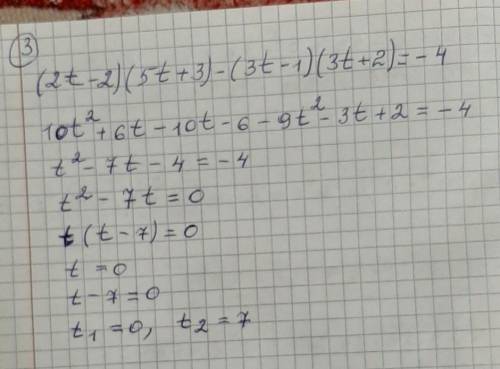 3
(2t-2)(5t+3)-(3t-1)(3t+2)=-4
10t²+6t-10t-6-9t²-3t+2=-4
t²-7t-4=-4
t²-7t=0
t(t-7)=0
t=0
t-7=0
t₁=0, t₂=7